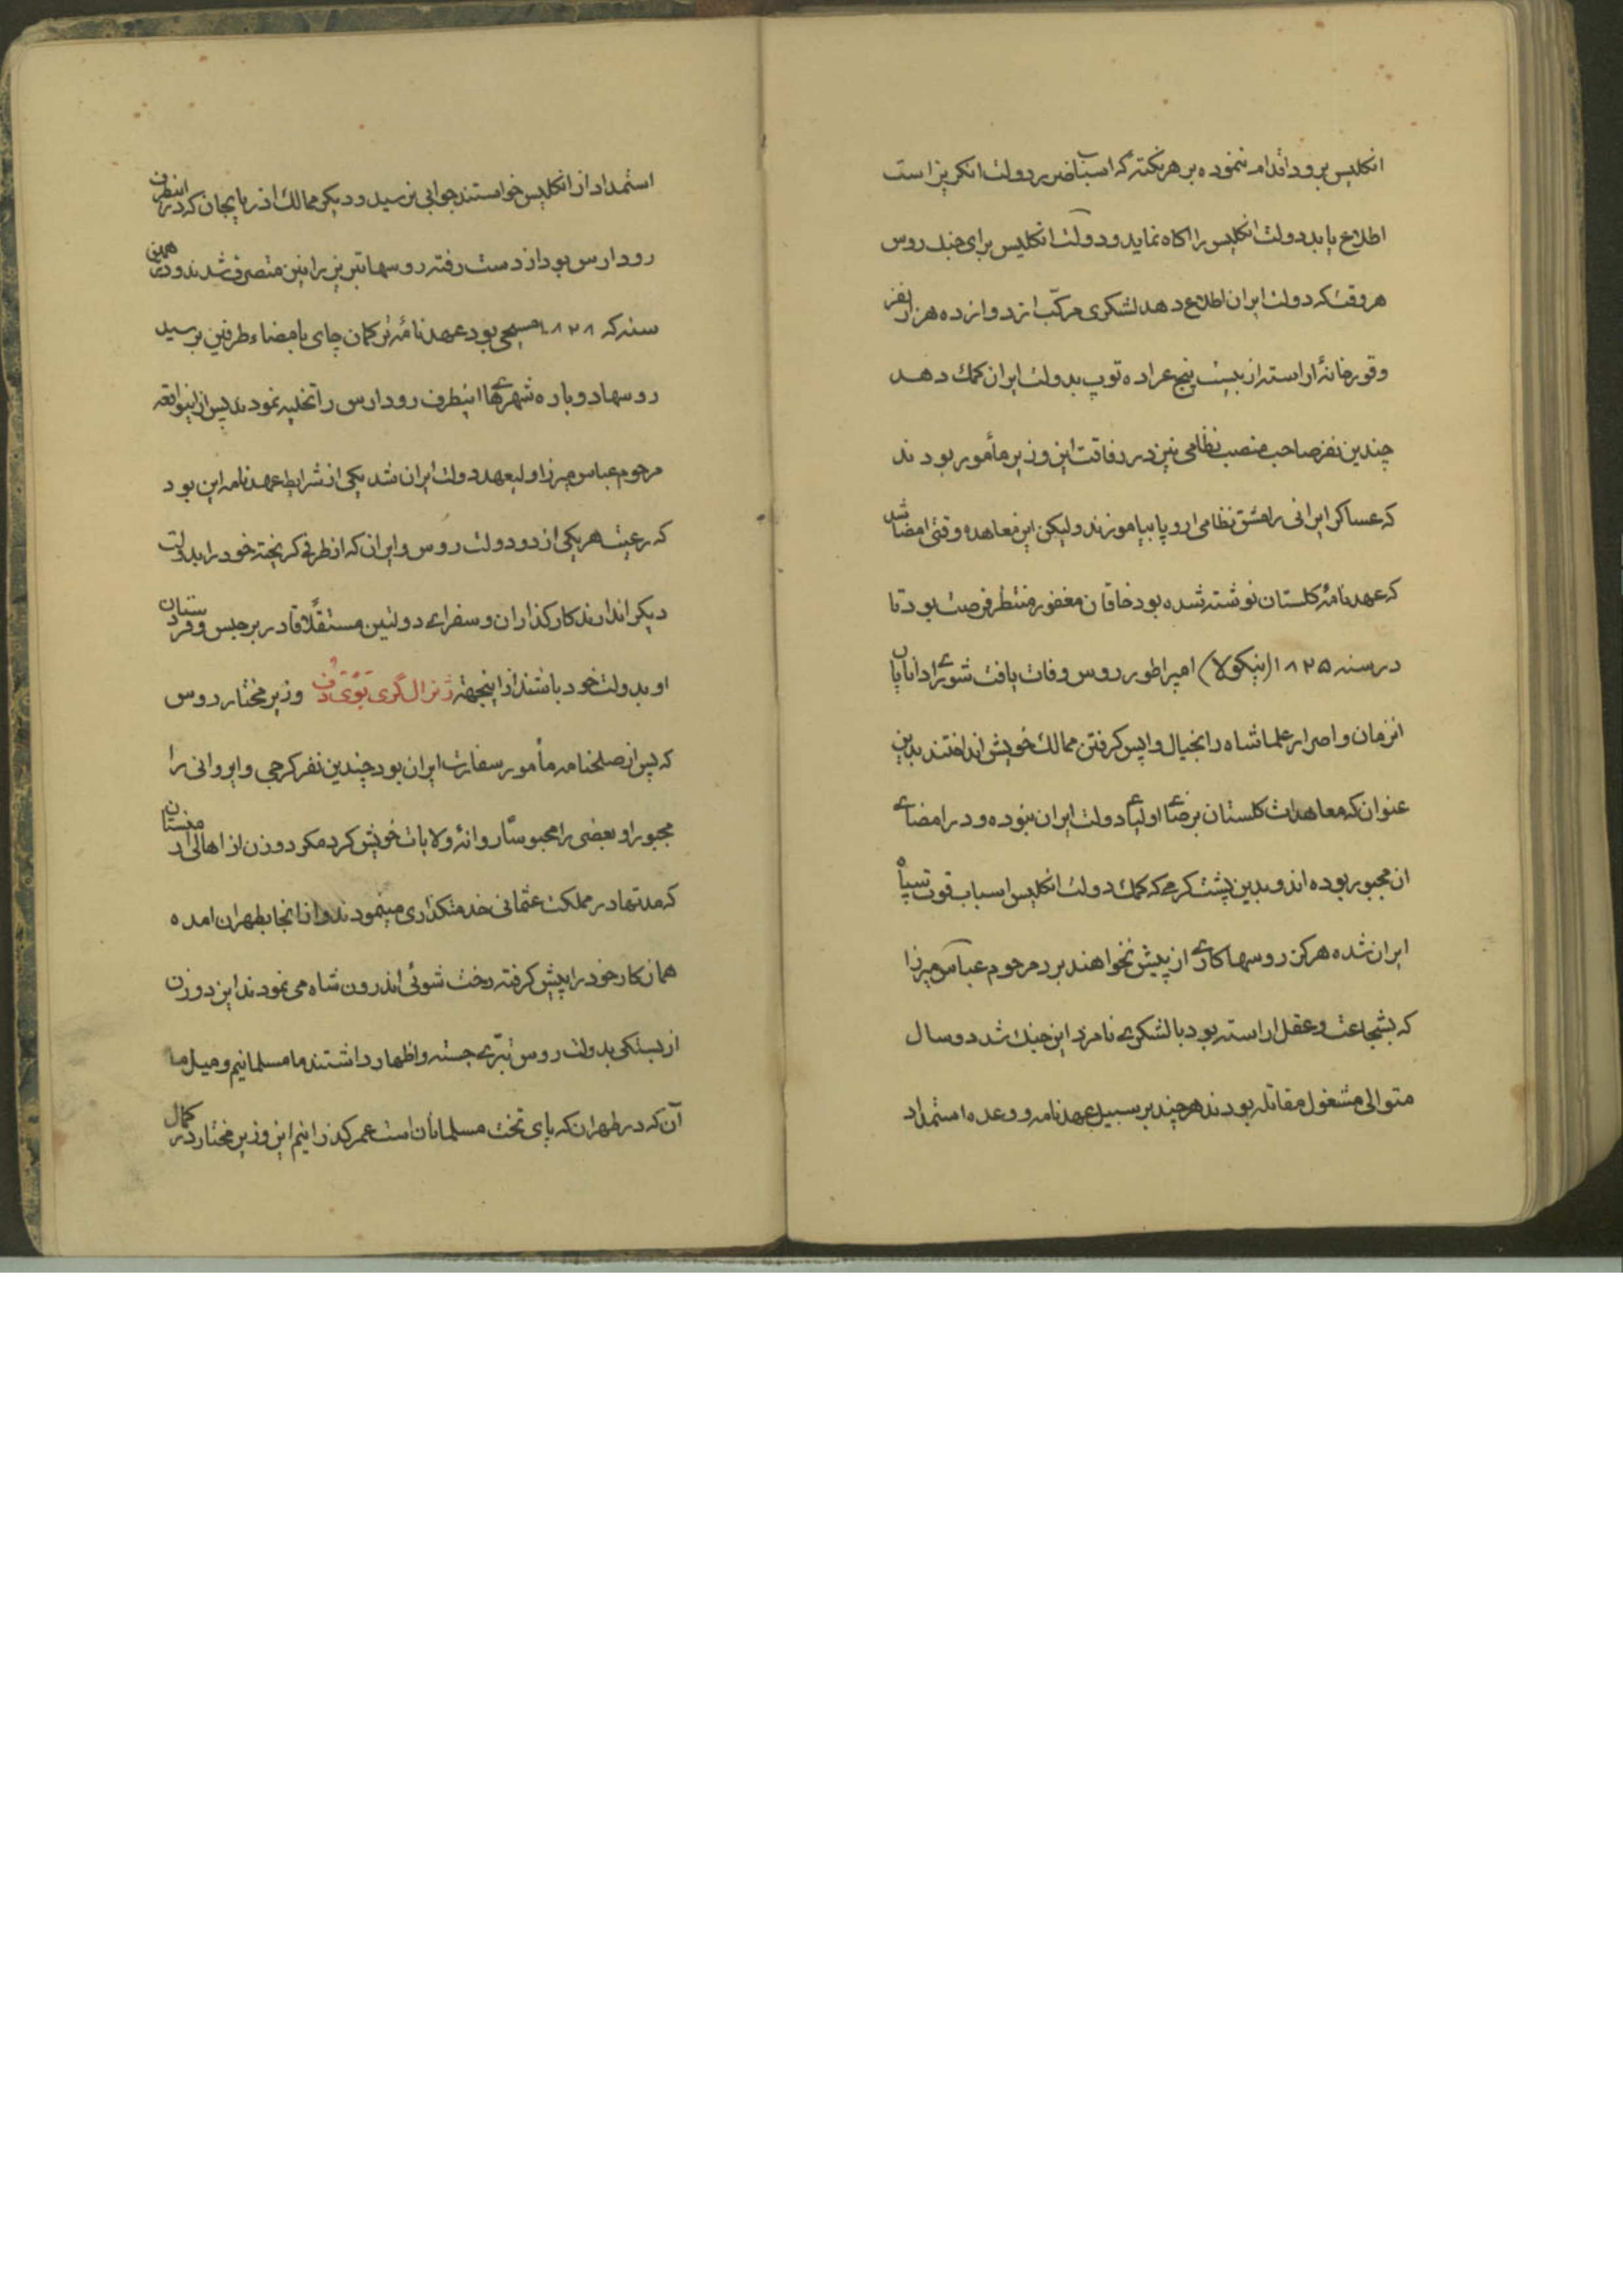 انکلیس برود اقدام ننموده بر هر نکته که اسباب ضرر دولت انکریز است
اطلاع یابد دولت انکلیس را اکاه نماید و دولت انکلیس برای جنک روس
هر وقت که دولت ایران اطلاع دهد لشکری مرکّب از دوازده هزار نفر
و قورخانهٔ اراسته از بیست پنج عراده توپ بدولت ایران کمک دهد
چندین نفر صاحب منصب نظامی نیز در رفاقت این وزیر مأمور بودند
که عساکر ایرانی را مشق نظامی اروپا بیاموزند ولیکن این معاهده وقتی امضا شد
که عهدنامهٔ کلستان نوشته شده بود خاقان مغفور منتظر فرصت بود تا
در سنه ۱۸۲۵ (نیکولا) امپراطور روس وفات یافت شورای دانایان
انزمان و اصرار علما شاه را بخیال واپس کرفتن ممالک خویش انداختند بدین
عنوان که معاهدات کلستان برضای اولیای دولت ایران نبوده و در امضای
ان مجبور بوده اند و بدین پشت کرمی که کمک دولت انکلیس اسباب قوت سپاه
ایران شده هرکز روسها کاری از پیش نخواهند برد مرحوم عباس میرزا
که بشجاعت و عقل اراسته بود با لشکری نامزد این جنک شد دو سال
متوالی مشغول مقاتله بودند هر چند بر سبیل عهدنامه و وعده استمداد
استمداد از انکلیس خواستند جوابی نرسید و دیکر ممالک اذربایجان که در اینطرف
رود ارس بود از دست رفته روسها تبریز را نیز متصرف شدند و در همین
سنه که ۱۸۲۸ مسیحی بود عهدنامهٔ ترکمان چای بامضاء طرفین برسید
روسها دوباره شهرهای اینطرف رود ارس را تخلیه نمودند پس از اینواقعه
مرحوم عباس میرزا ولیعهد دولت ایران شد یکی از شرایط عهدنامه این بود
که رعیت هر یکی از دو دولت روس و ایران که از طرفی کریخته خود را بدولت
دیکر اندازند کارکذاران و سفرای دولتین مستقلاً قادر بر حبس و فرستادن
او بدولت خود باشند از اینجهة ژنرال گری بویدف وزیر مختار روس
که پس از صلحنامه مأمور سفارت ایران بود چندین نفر کرجی و ایروانی را
مجبورا و بعضی را محبوسّا روانهٔ ولایات خویش کرد مکر دو زن از اهالی ارمنستان
که مدتها در مملکت عثمانی خدمتکذاری مینمودند و از انجا بطهران امده
همان کار خود را پیش کرفته رخت شوئی اندرون شاه می نمودند این دو زن
از بستکی بدولت روس تبّری جسته و اظهار داشتند ما مسلمانیم و میل ما
آن که در طهران که پای تخت مسلمانان است عمر کذرانیم این وزیر مختار در کمال